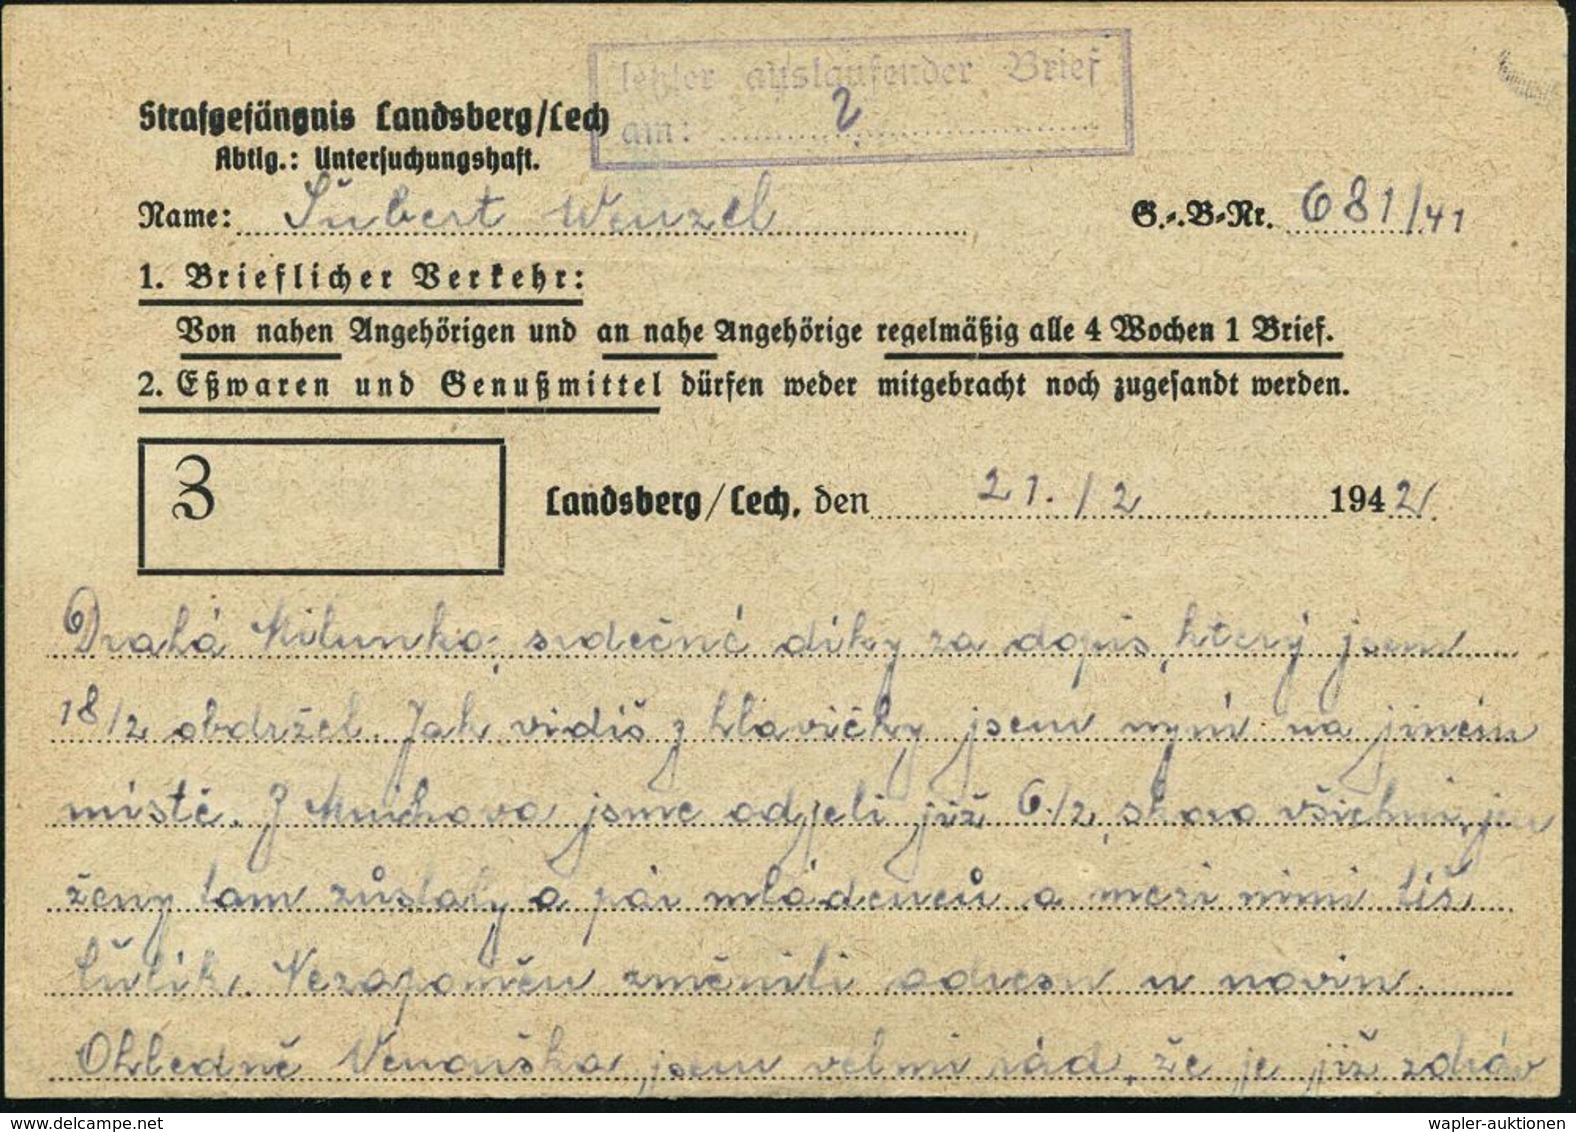 letzter auslaufender Brief
am: 2.
Strafgefängnis Landsberg/Lech
Abtlg.: Untersuchungshaft.
Name: Šubert Wenzel G.-B-Nr. 681/41
1. Brieflicher Verkehr:
Von nahen Angehörigen und an nahe Angehörige regelmäßig alle 4 Wochen 1 Brief.
2. Eßwaren und Genußmittel dürfen weder mitgebracht noch zugesandt werden.
3 Landsberg/Lech, den 21./2 1942
Drahá Milunko, srdečné díky za dopis, který jsem
18/2 obdržel. Jak vidíš z hlavičky jsem nyní na jiném
místě. Z Mnichova jsme odjeli již 6./2, skoro všichni, jen
ženy tam zůstaly a pár mládenců a mezi nimi též
Nezapoměň změniti adresu u novin.
Ohledně Venouška, jsem velmi rád, že je již zdráv
wapler-auktionen